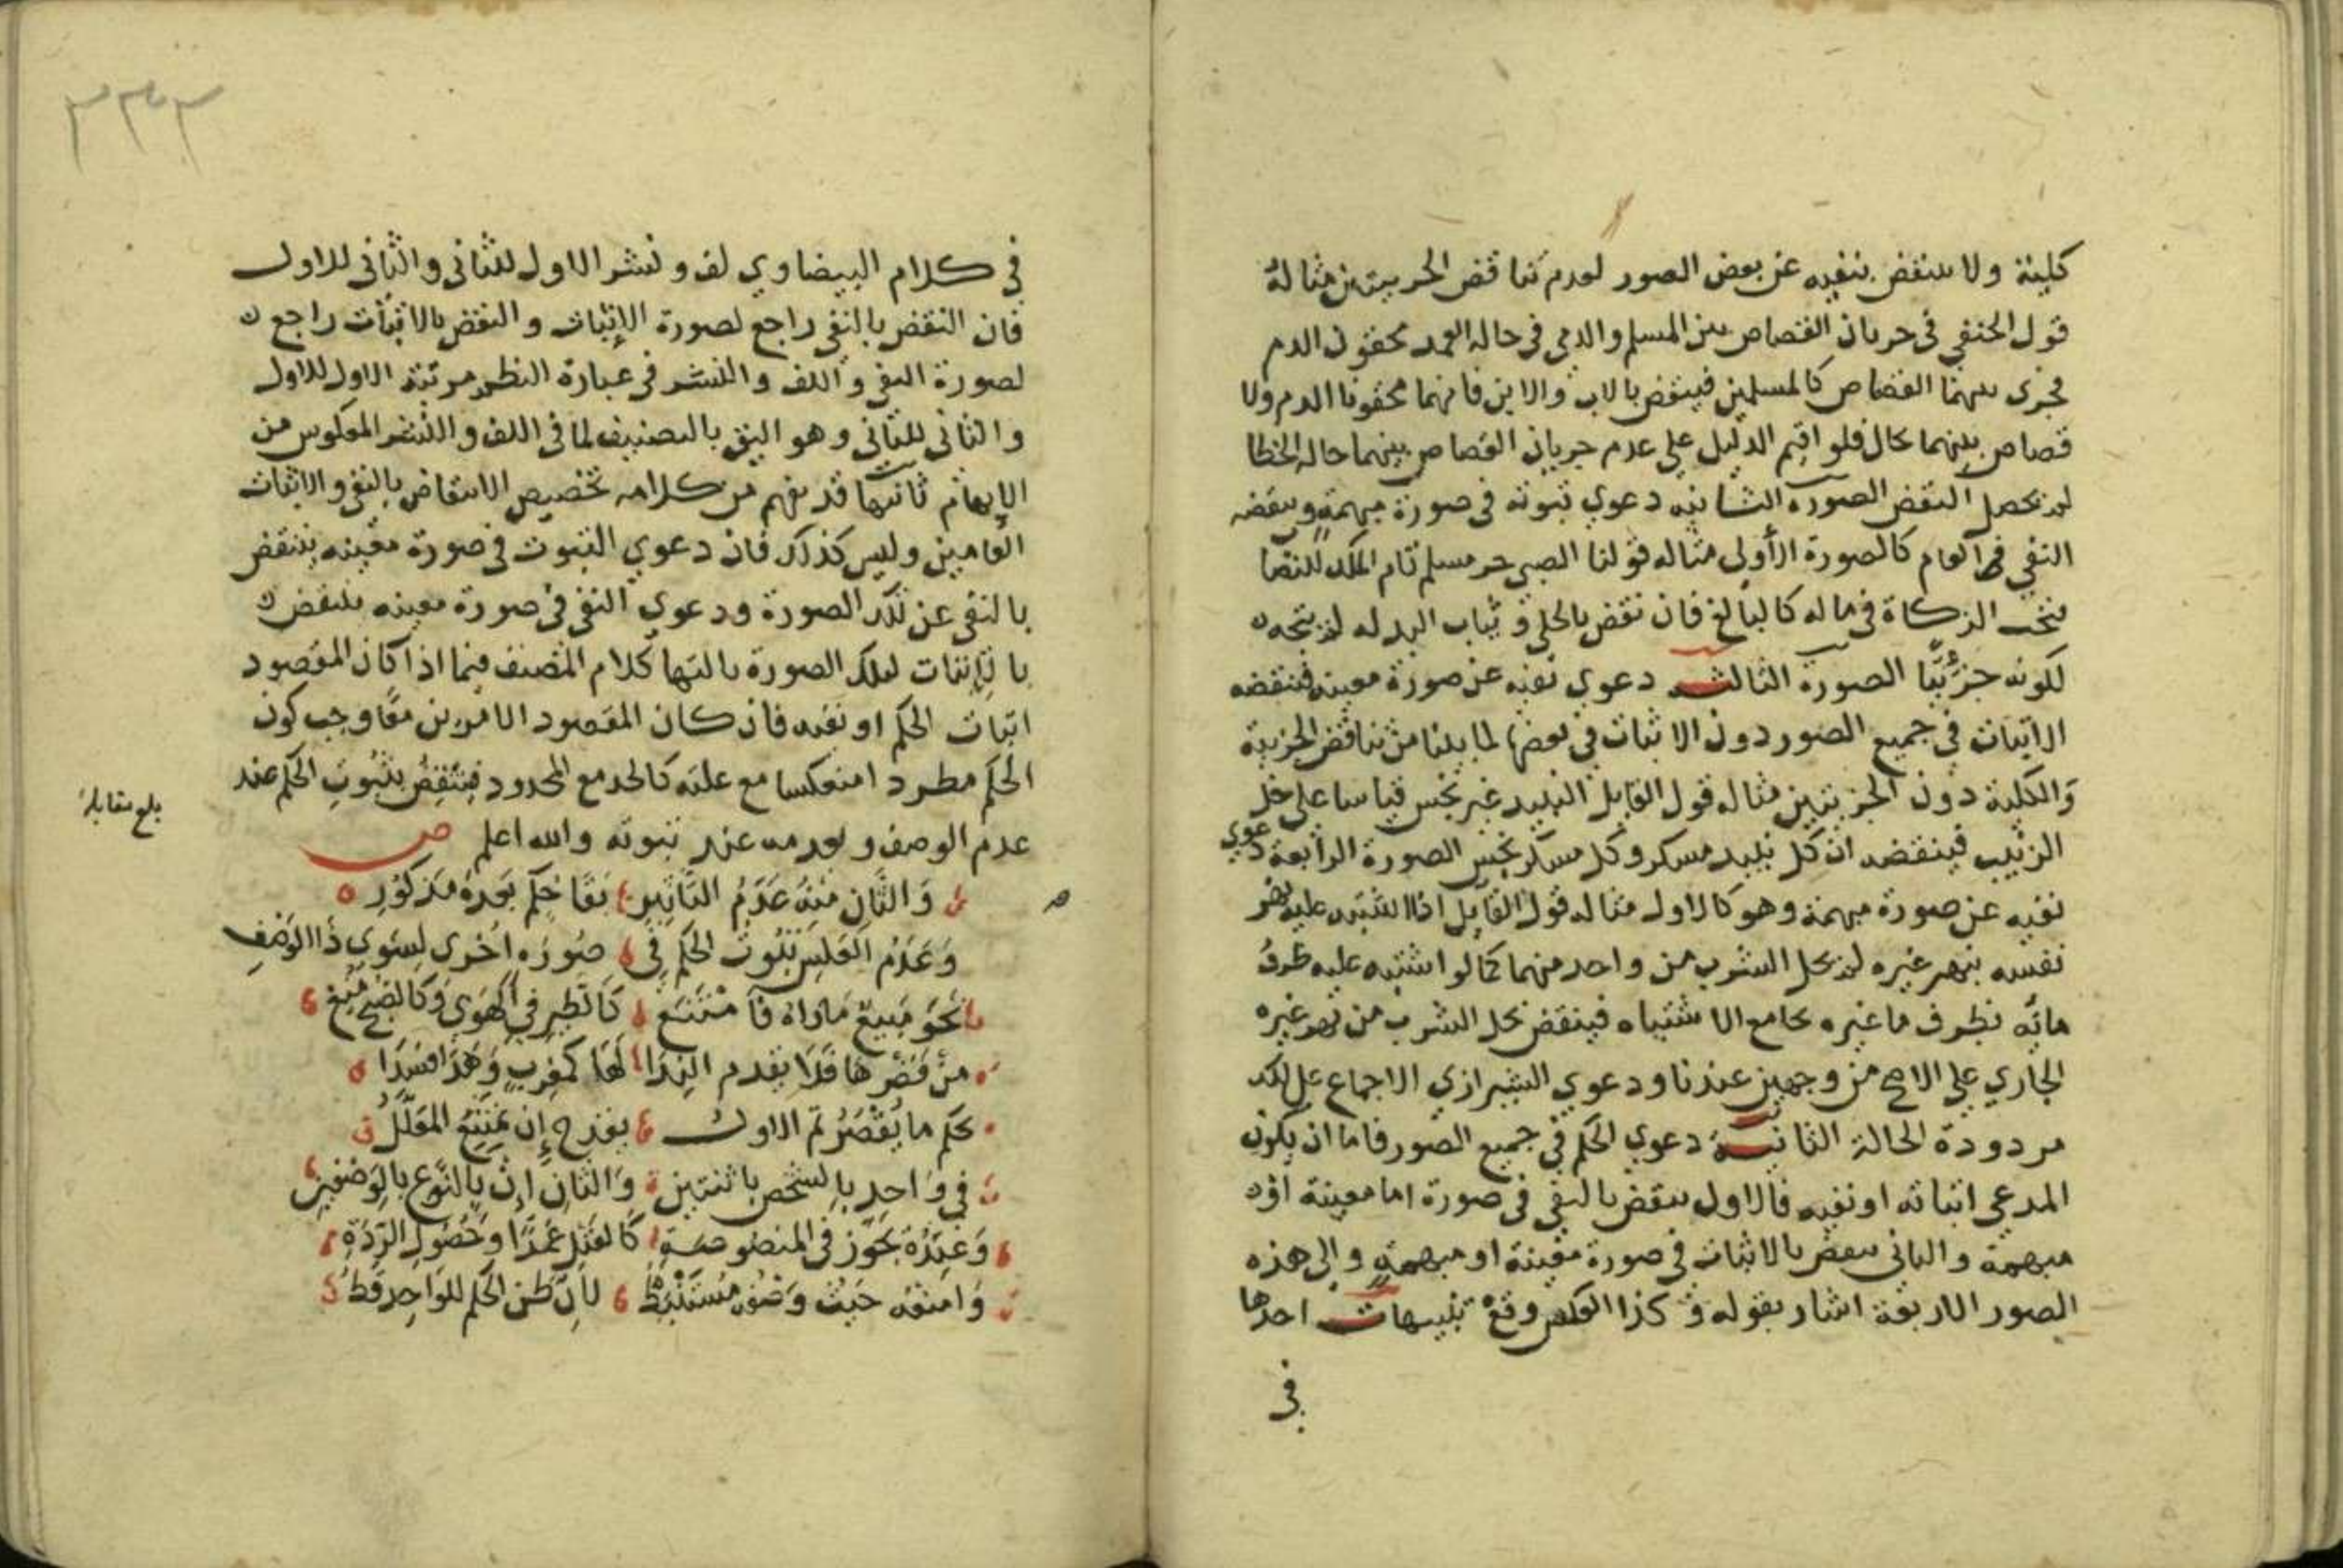 كلية ولا ينتقض بنفيه عن بعض الصور لعدم تناقض الجزييتين مثاله
قول الحنفي في جريان القصاص بين المسلم والذمي في حالة العمد محقون الدم
فجرى بينهما القصاص كالمسلمين فينقض بالاب والابن فانهما محقونا الدم ولا
قصاص بينهما بحال فلو اقيم الدليل علي عدم جريان القصاص بينهما حالة الخطا
لم يحصل النقض الصورة الثانيه دعوي ثبوته في صورة مبهمة وينقضه
النفي العام كالصورة الأولى مثاله قولنا الصبي حر مسلم تام الملك للنصا
فتجب الزكاة في ماله كالبالغ فان نقض بالحلي وثياب البدله لم يتجه
لكونه جزئيًا الصورة الثالثه دعوي نفيه عن صورة معينه فينقضه
الاثبات في جميع الصور دون الاثبات في بعضها لما بينا من تناقض الجزيية
والكلية دون الجزييتين مثاله قول القايل النبيد غير نجس قياسا على خل
الزبيب فينقضه ان كل نبيد مسكر وكل مسكر نجس الصورة الرابعة دعوي
نفيه عن صورة مبهمة وهو كالاول مثاله قول القايل اذا اشتبه عليه نهر
نفسه بنهر غيره لم يحل الشرب من واحد منهما كما لو اشتبه عليه ظرف
مائه بظرف ما غيره بجامع الاشتباه فينقض بحل الشرب من نهر غيره
الجاري علي الاصح من وجهين عندنا ودعوي الشيرازي الاجماع علي ذلك
مردودة الحالة الثانيه دعوي الحكم في جميع الصور فاما ان يكون
المدعي اثباته او نفيه فالاول ينقض بالنفي في صورة اما معينة او
مبهمة والثاني ينقض بالاثبات في صورة معينة او مبهمة والى هذه
الصور الاربعة اشار بقوله وكذا العكس وقع تنبيهات احدها
في
٣٣٣
في كلام البيضاوي لف ونشر الاول للثاني والثاني للاول
فان النقض بالنفي راجع لصورة الإثبات والنقض بالاثبات راجع
لصورة النفي واللف والنشر في عبارة النظم مرتبة الاول للاول
والثاني للثاني وهو اليق بالتصنيف لما في اللف والنشر المعكوس من
الإبهام ثانيها قد يفهم من كلامه تخصيص الانتقاض بالنفي والاثبات
العامين وليس كذلك فان دعوي الثبوت في صورة معينه ينتقض
بالنفي عن تلك الصورة ودعوي النفي في صورة معينه ينتقض
بالإثبات لتلك الصورة ثالثها كلام المصنف فيما اذا كان المقصود
اثبات الحكم او نفيه فان كان المقصود الامرين معًا وجب كون
الحكم مطردا منعكسا مع علته كالحد مع المحدود فينتقض بثبوت الحكم عند
عدم الوصف وبعدمه عند ثبوته والله اعلم ص
بلغ مقابلة
وَالثَّانِ مِنْهُ عَدَمُ التَّاثِيرِ بَقَا حكم بَعْدهُ مَذكُورِ
وَعَدَمُ العكسِ ثبُوت الحكم في صُورَه اخرى لِسوي ذَا الوَصْفِ
نحو مَبيعٌ مَا رَاهُ فامْتَنَع كَالطير في الهَوَى وكَالصُّبح مُنع
من قَصْرِهَا فَلا يقدم النِدا لهَا كمغرِبٍ وَهَذَا فَسَدَا
بحكم ما يُقْصَرُ ثم الاول يقدح إِن يَمْتَنِعُ المُعَلَّلُ
في وَاحدٍ بالشخص باثنتين وَالثانِ إِن بالنَّوعِ بالوَصْفين
وَعِندَهُ يجَوّز في المنصُوصَة كَالقتلِ عَمْدًا وَحُصُولِ الرِدّةِ
وَامنعْهُ حَيثُ وَصْفه مُسْتَنْبَطْ لأنّ ظن الحكم للوَاحِدِ قَط